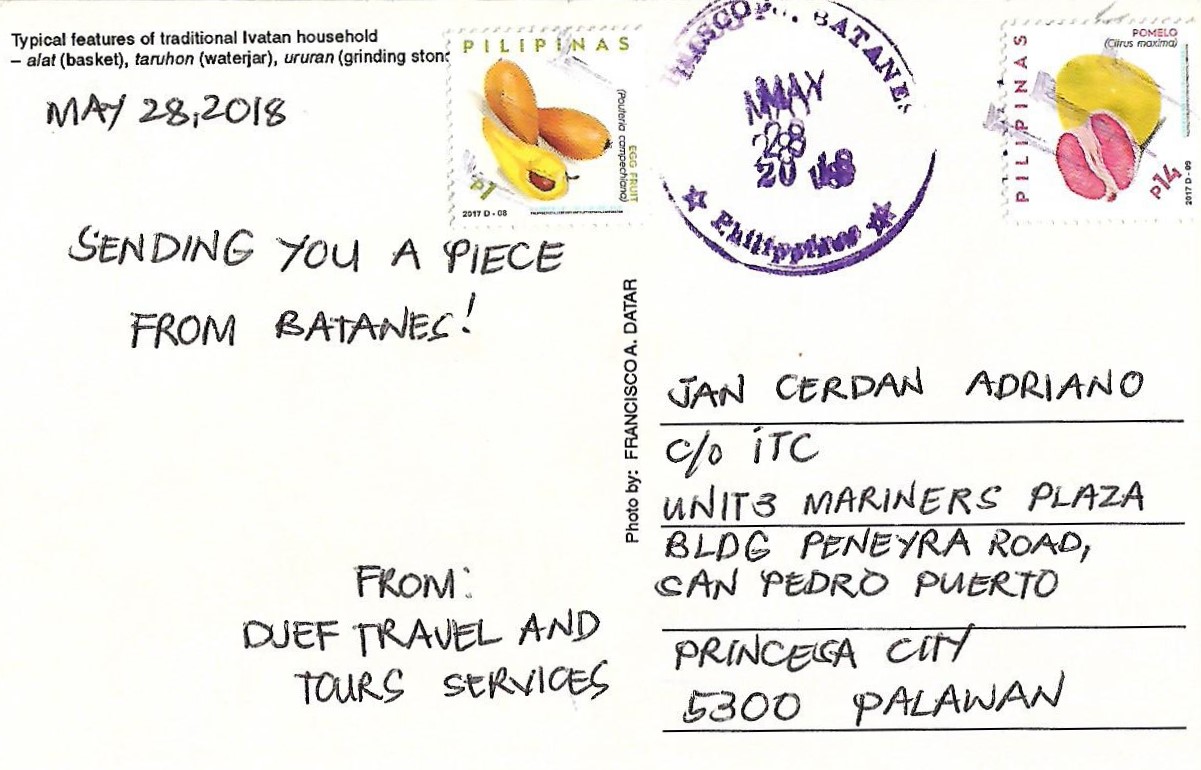 Typical features of traditional Ivatan household
– alat (basket), taruhon (waterjar), ururan (grinding stone
MAY 28,2018
SENDING YOU A PIECE
FROM BATANES!
FROM:
DJEF TRAVEL AND
TOURS SERVICES
PILIPINAS
(Pouteria campechiana)
EGG FRUIT
P1
2017 D - 08
BATANES
MAY
28
2018
Philippines
POMELO
(Citrus maxima)
PILIPINAS
P14
2017 D - 09
Photo by: FRANCISCO A. DATAR
JAN CERDAN ADRIANO
C/O ITC
UNIT3 MARINERS PLAZA
BLDG PENEYRA ROAD,
SAN PEDRO PUERTO
PRINCESA CITY
5300 PALAWAN